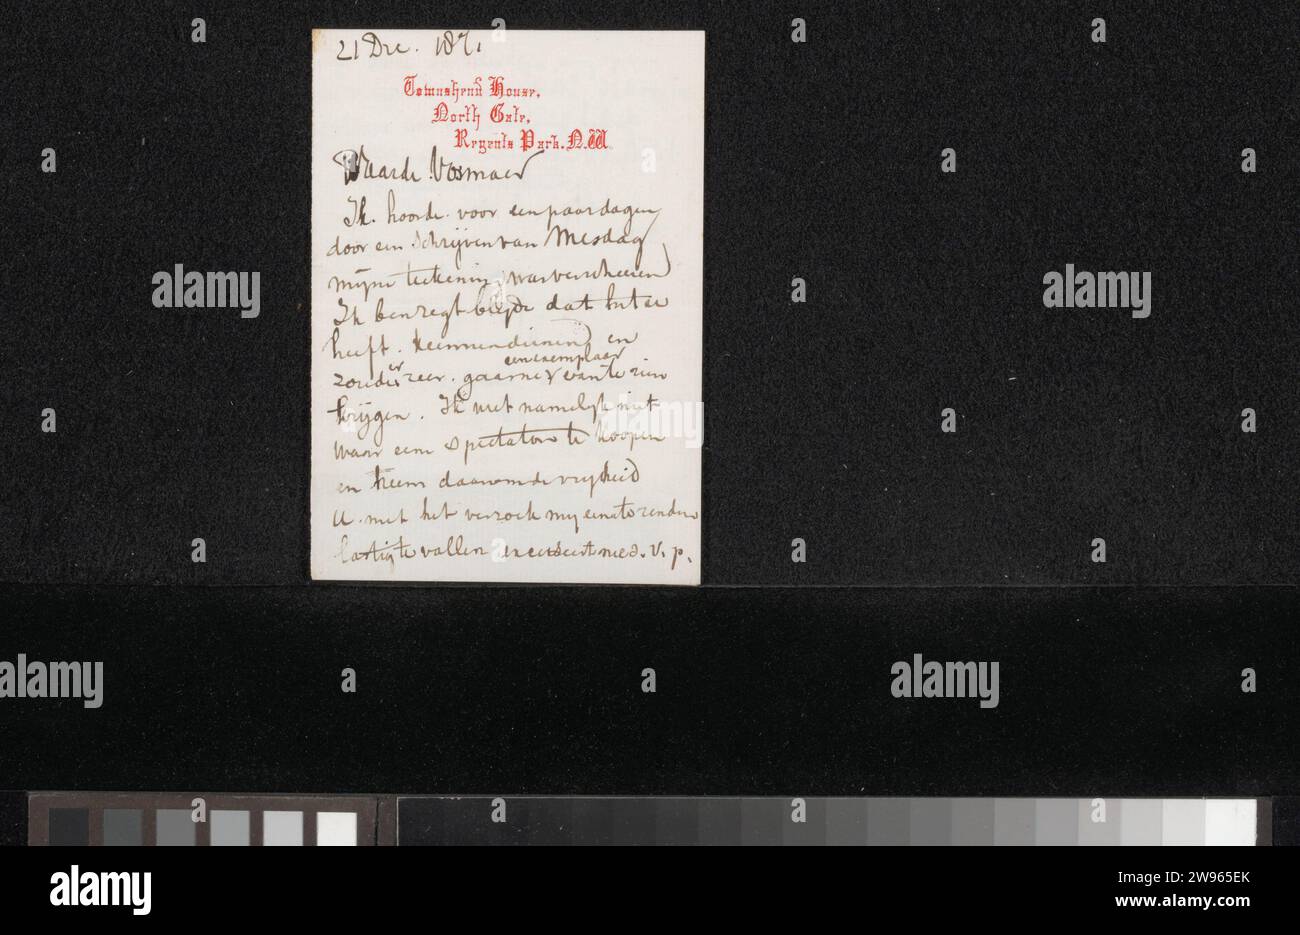 21 Dec. 1871
Townshend House,
North Gate,
Regents Park. N.W.
Waarde Vosmaer
Ik hoorde voor een paar dagen
door een schrijven van Mesdag
mijne teekening was verscheenen
Ik ben regt blijde dat het ee
heeft. kennendienend en
zoude er zeer gaarne een exemplaar van te zien
krijgen. Ik weet namelijk niet
waar een spectator te koopen
en neem daarom de vrijheid
U met het verzoek mij een to zenden
lastig te vallen en eerdeest med. v. p.
alamy
Image ID: 2W965EK
www.alamy.com